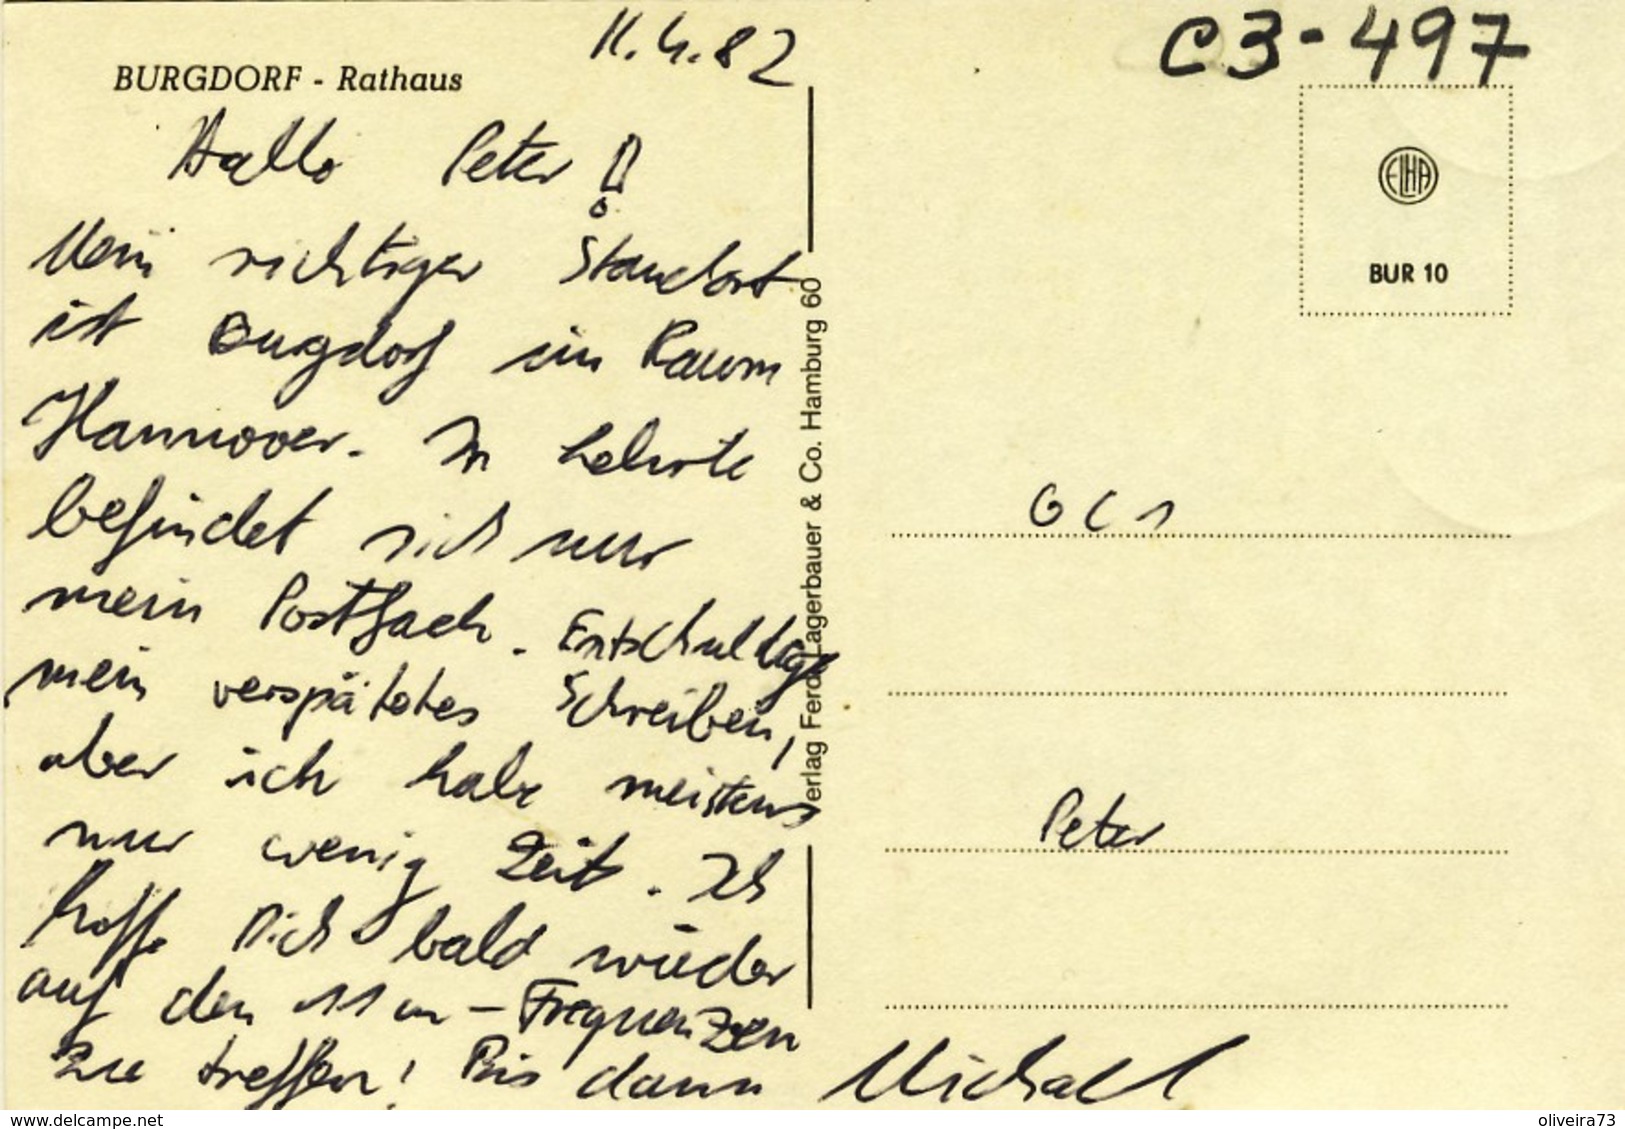 11.4.82
C3-497
BURGDORF - Rathaus
Hallo Peter!
Mein richtiger Standort
ist Burgdorf im Raum
Hannover. In Lehrte
befindet sich nur
mein Postfach. Entschuldige
mein verspätetes Schreiben,
aber ich habe meistens
nur wenig Zeit. Ich
hoffe Dich bald wieder
auf den 11m-Frequenzen
zu treffen! Bis dann Michael
Verlag Ferd. Lagerbauer & Co. Hamburg 60
ELHA
BUR 10
GC1
Peter
delcampe.net
oliveira73